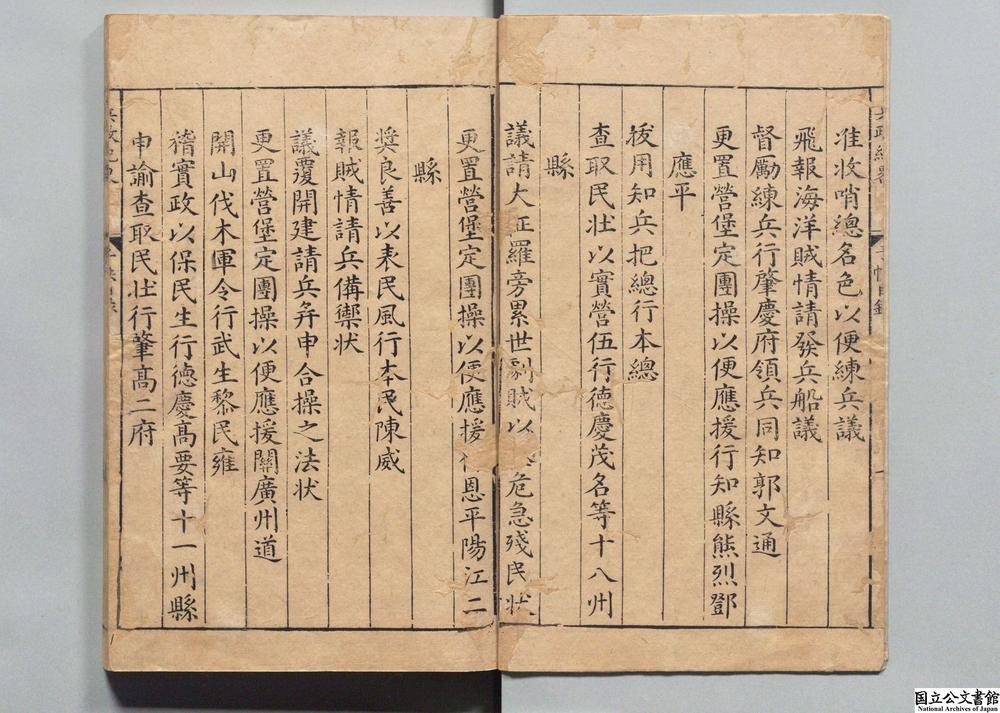 准收哨總名色以便練兵議
飛報海洋賊情請發兵船議
督勵練兵行肇慶府領兵同知郭文通
更置營堡定團操以便應援行知縣熊烈鄧
應平
拔用知兵把總行本總
查取民壮以實營伍行德慶茂名等十八州
縣
議請大征羅旁累世劇賊以危急殘民状
更置營堡定團操以便應援恩平陽江二
縣
奬良善以表民風行本民陳威
報賊情請兵備禦状
議覆開建請兵弁申合操之法状
更置營堡定團操以便應援關廣州道
開山伐木軍令行武生黎民雍
稽實政以保民生行德慶高要等十一州縣
申諭查取民壮行肇高二府
国立公文書館
National Archives of Japan